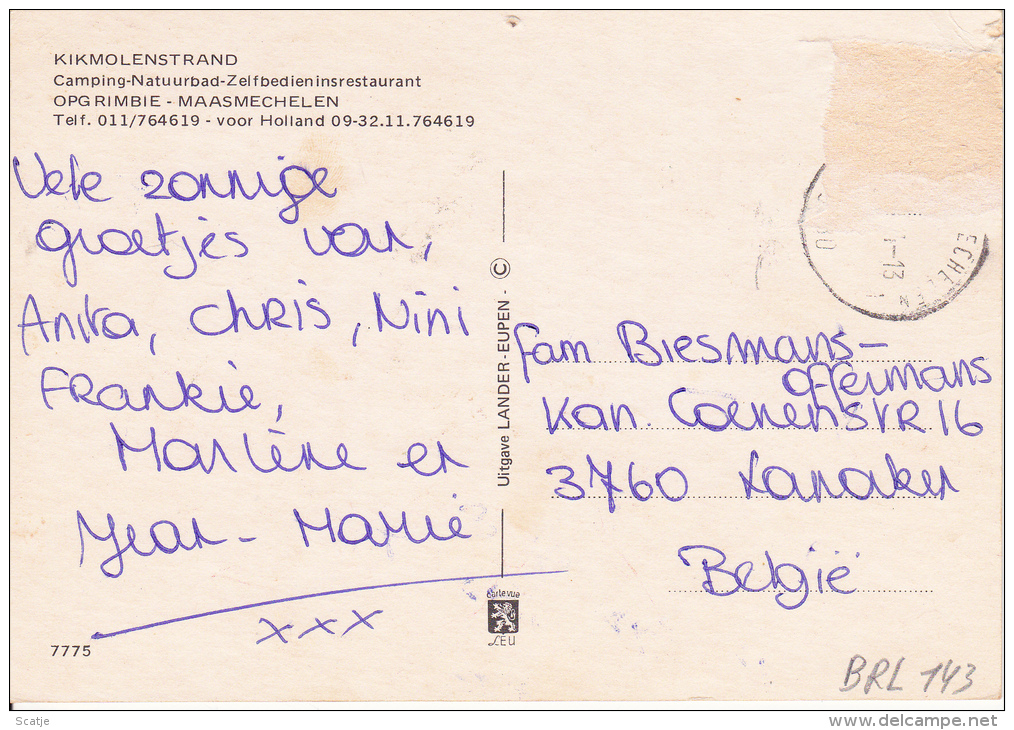 KIKMOLENSTRAND
Camping-Natuurbad-Zelfbedieninsrestaurant
OPGRIMBIE - MAASMECHELEN
Telf. 011/764619 - voor Holland 09-32.11.764619
Vele zonnige
groetjes van,
Anita, Chris, Nini
Frankie,
Marlène en
Jean-Marie
xxx
7775
Uitgave LANDER-EUPEN - ©
cartevue
LEU
1-13
ECHELEN
fam Biesmans-
offermans
Kan. Coenenstr 16
3760 Lanaken
België
BRL 143
Scatje
www.delcampe.net